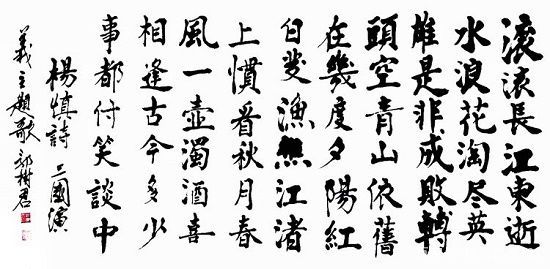 滚滚長江東逝
水浪花淘尽英
雄是非成敗轉
頭空青山依舊
在幾度夕陽紅
白发漁樵江渚
上慣看秋月春
風一壺濁酒喜
相逢古今多少
事都付笑談中
楊慎詩 三國演
義主題歌 郭樹君